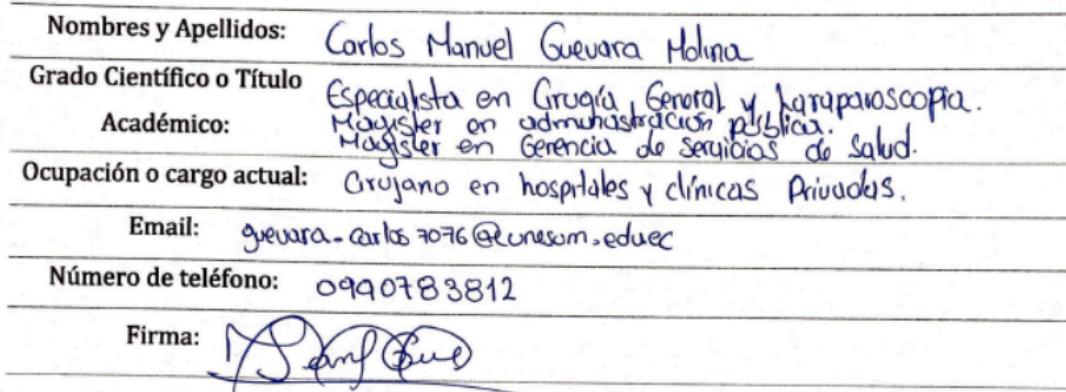 Nombres y Apellidos: Carlos Manuel Guevara Molina
Grado Científico o Título Especialista en Cirugía, General y Laraparoscopia.
Académico: Magister en administración pública.
Magister en Gerencia de Servicios de Salud.
Ocupación o cargo actual: Cirujano en hospitales y clínicas Privadas.
Email: guevara-carlos7076@unesum.eduec
Número de teléfono: 0990783812
Firma: